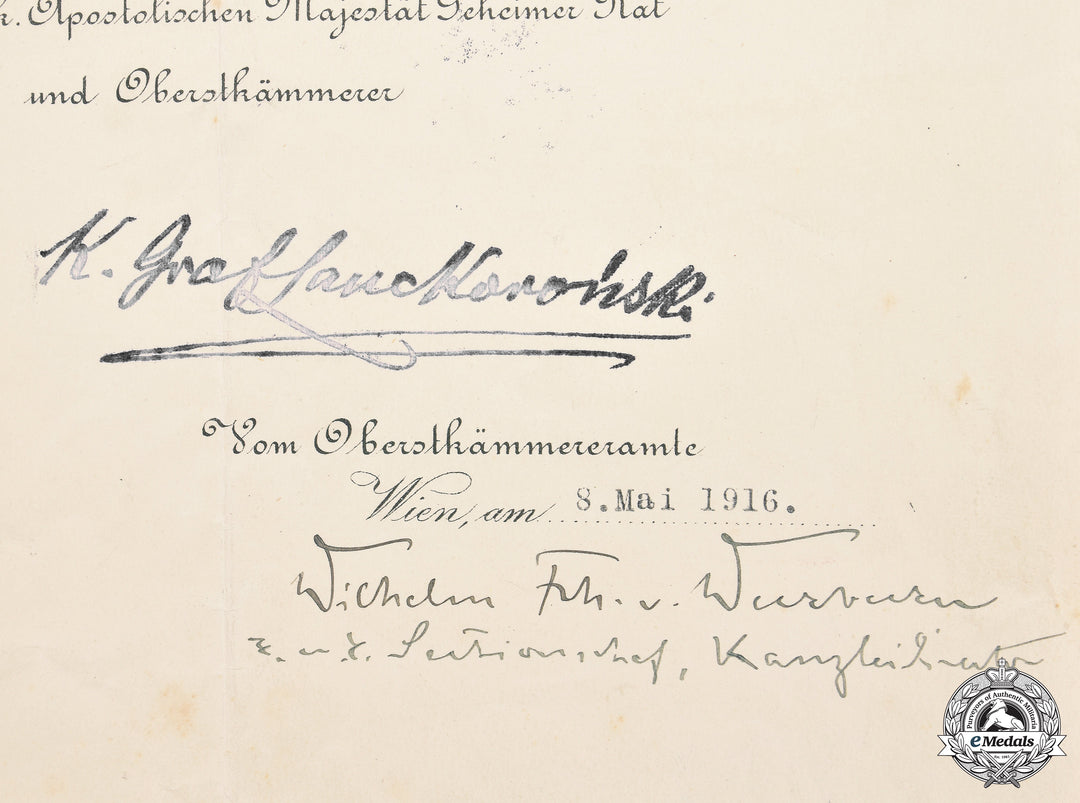 k. Apostolischen Majestät Geheimer Rat
und Oberstkämmerer
K. Graf Lanckoroński
Vom Oberstkämmereramte
Wien, am 8.Mai 1916.
Wilhelm Frh. v. Weerbeern
k. u. k. Sectionschef, Kanzleidirector
Purveyors of Authentic Militaria
eMedals